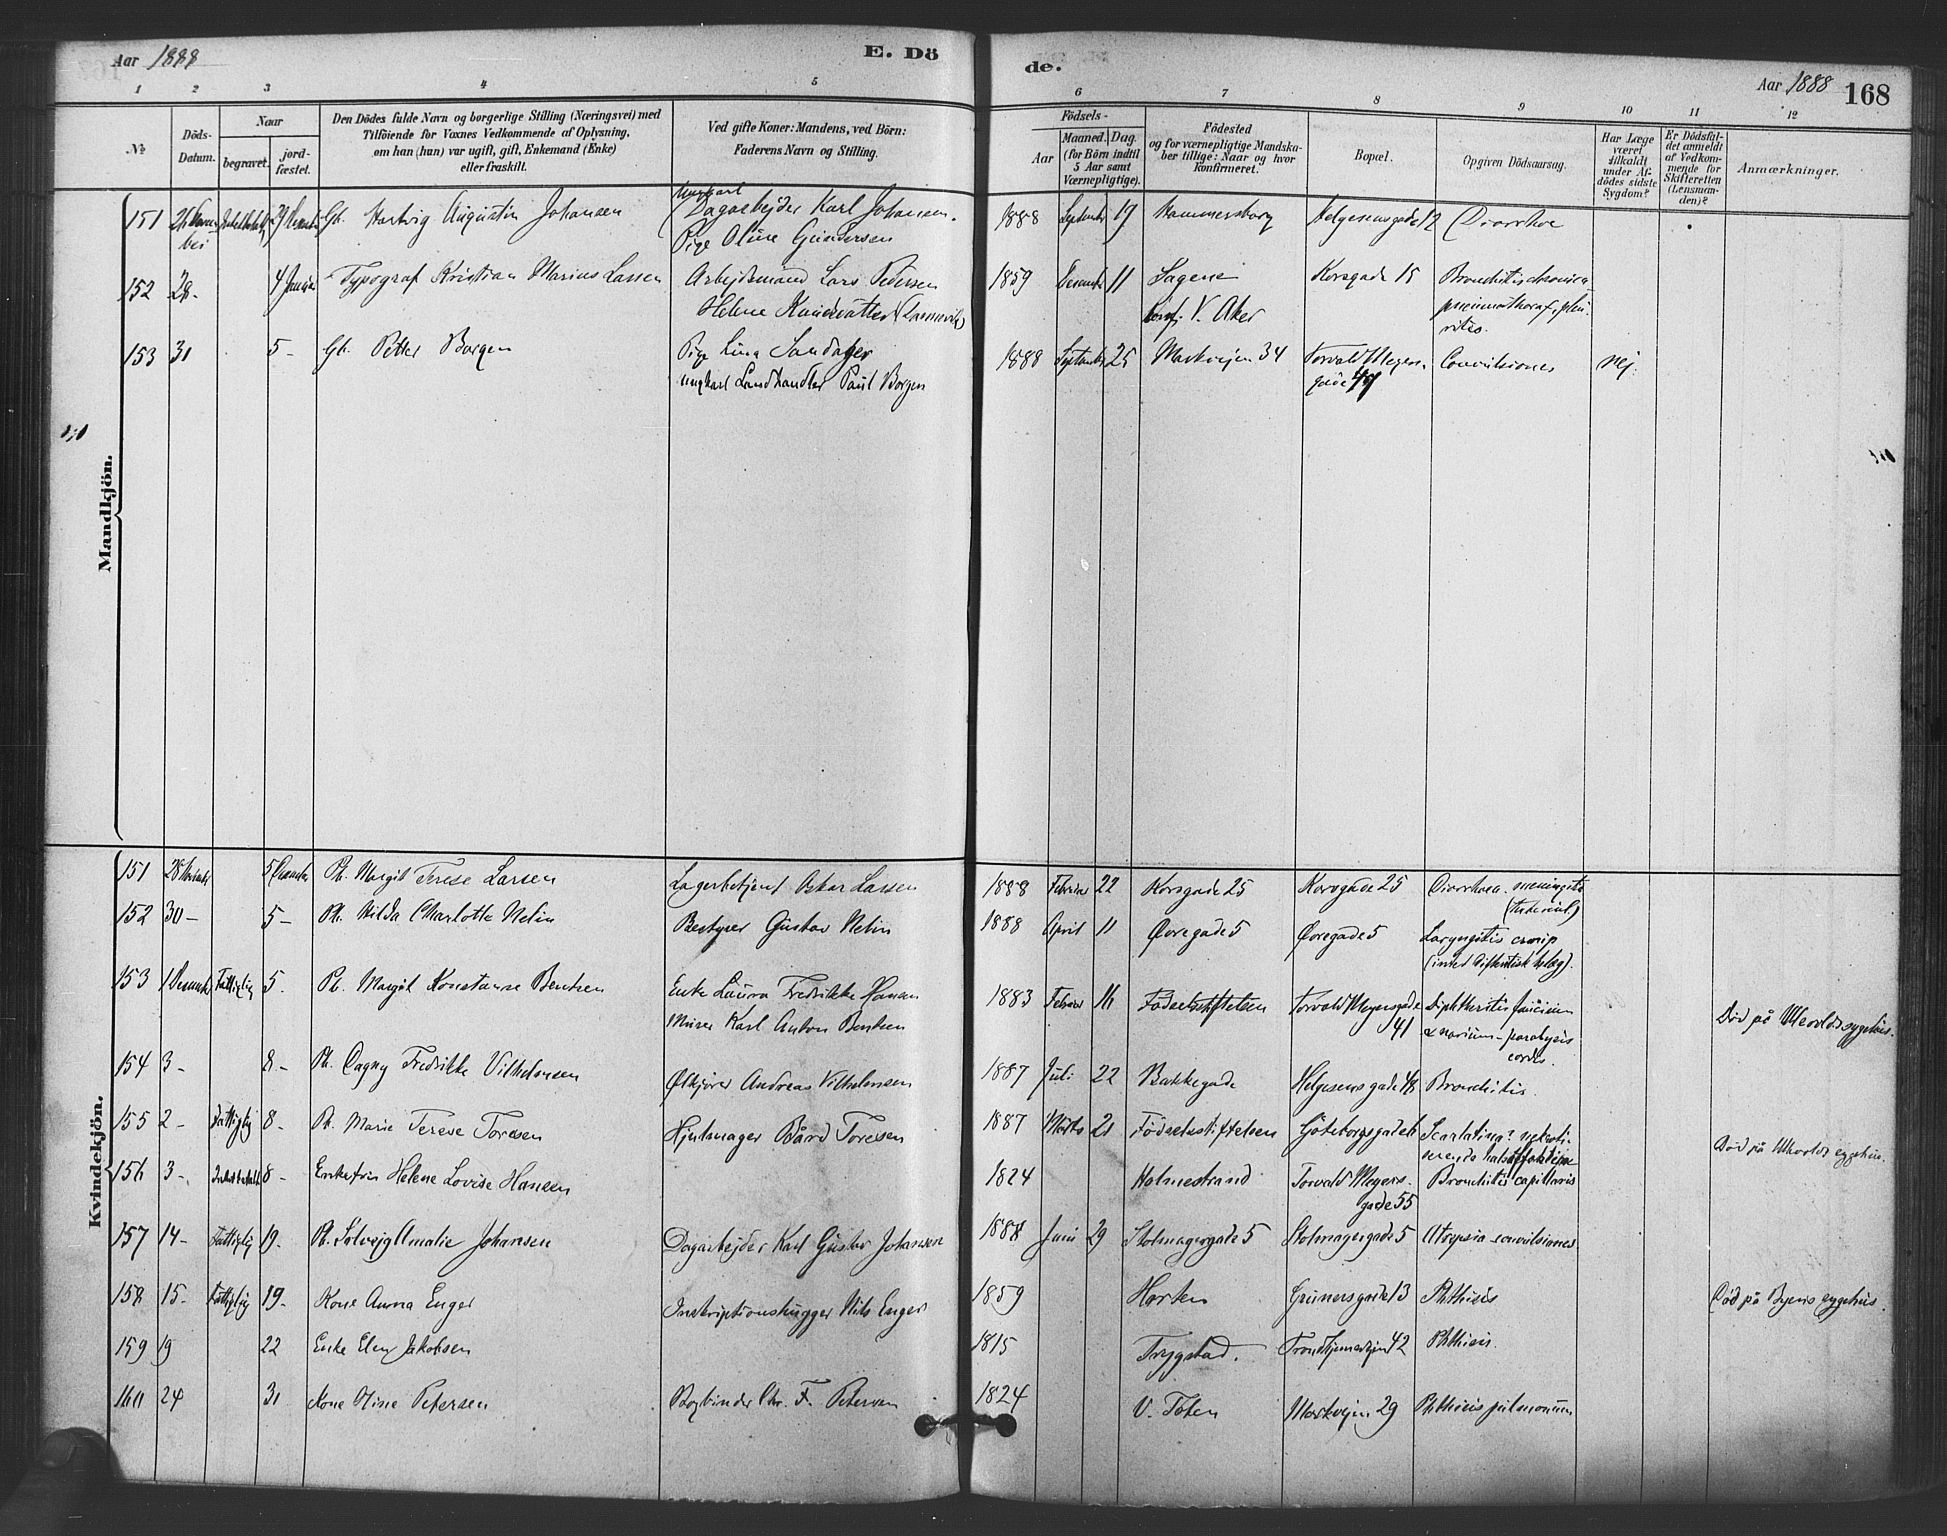 Aar 1888
E. Dö
de.
Aar 1888
168
1 2 3 4 5 6 7 8 9 10 11 12
№
Döds-
Datum.
Naar
begravet.
jord-
fæstet.
Den Dödes fulde Navn og borgerlige Stilling (Næringsvei) med
Tilföiende for Voxnes Vedkommende af Oplysning,
om han (hun) var ugift, gift, Enkemand (Enke)
eller fraskilt.
Ved gifte Koner: Mandens, ved Börn:
Faderens Navn og Stilling.
Födsels-
Aar
Maaned. Dag.
(for Börn indtil
5 Aar samt
Værnepligtige).
Födested
og for værnepligtige Mandska-
ber tillige: Naar og hvor
Konfirmeret.
Bopæl.
Opgiven Dödsaarsag.
Har Læge
været
tilkaldt
under Af-
dödes sidste
Sygdom?
Er Dödsfal-
det anmeldt
af Vedkom-
mende for
Skifteretten
(Lensman-
den)?
Anmærkninger.
Mandkjön.
Ungkarl
151 Gb. Hartvig Augustin Johansen Dagarbejder Karl Johansen. 1888 Septemb 19 Hammersborg Helgesensgade 12 Diarrhoe
Pige Oline Gundersen
152 28- 4 Januar Typograf Kristian Marius Larsen Arbejdsmand Lars Pedersen 1859 Decemb 11 Sagene Korsgade 15 Bronchitis chronica
Helene V. Aker
153 31 5- Gb. Petter Borgen Pige Lina 1888 Septemb 25 Markvejen 34 Torvald Meyers- Convulsiones nej.
ungkarl Landhandler Paul Borgen gade
Kvindekjön.
151 28 5 Pb. Margit Terese Larsen Lagerbetjent Oskar Larsen 1888 Februar 22 Korsgade 25 Korsgade 25 Diarrhoea. meningitis
152 30- 5- Pb. Hilda Charlotte Nelin Bestyrer Gustav Nelin 1888 April 11 Øvregade 5 Øvregade 5 Laryngitis croup
153 1 Decemb Fattiglig 5. Pb. Margit Konstanse Bentsen Enke Laura Fredrikke Hansen 1883 Februar 16 Fødselsstiftelsen Torvald Meyersgade Diphtheritis faucium
Murer Karl Anton Bentsen 41 & narium - paralysis
cordis. Død på Ullevolds sygehus.
154 3- 8- Pb. Dagny Fredrikke Vilhelmsen Ølkjører Andreas Vilhelmsen 1887 Juli 22 Bakkegade Helgesensgade 48 Bronchitis.
155 2- Fattiglig 8- Pb. Marie Terese Toresen Hjulmager Bård Toresen 1887 Marts 21 Fødselsstiftelsen Göteborgsgade Scarlatina? Død på Ullevolds sygehus.
156 3- 8- Enkefru Helene Lovise Hansen 1824 Holmestrand Torvald Meyers- Bronchitis capillaris
gade 55
157 14- Fattiglig 19- Pb. Solveig Amalie Johansen Dagarbejder Karl Gustav Johansen 1888 Juni 29 Stolmagergade 5 Stolmagergade 5 Atrepsia - convulsiones
158 15- Fattiglig 19- Kone Anna Enger Inskriptionshugger Nils Enger 1859 Horten Grünersgade 13 Phthisis Død på Byens sygehus.
159 19 22 Enke Elen Jakobsen 1815 Trygstad. Trondhjemsvejen 42 Phthisis.
160 24 31 Kone Stine Petersen Bogbinder Chr. F. Petersen 1824 V. Toten Markvejen 29 Phthisis pulmonum